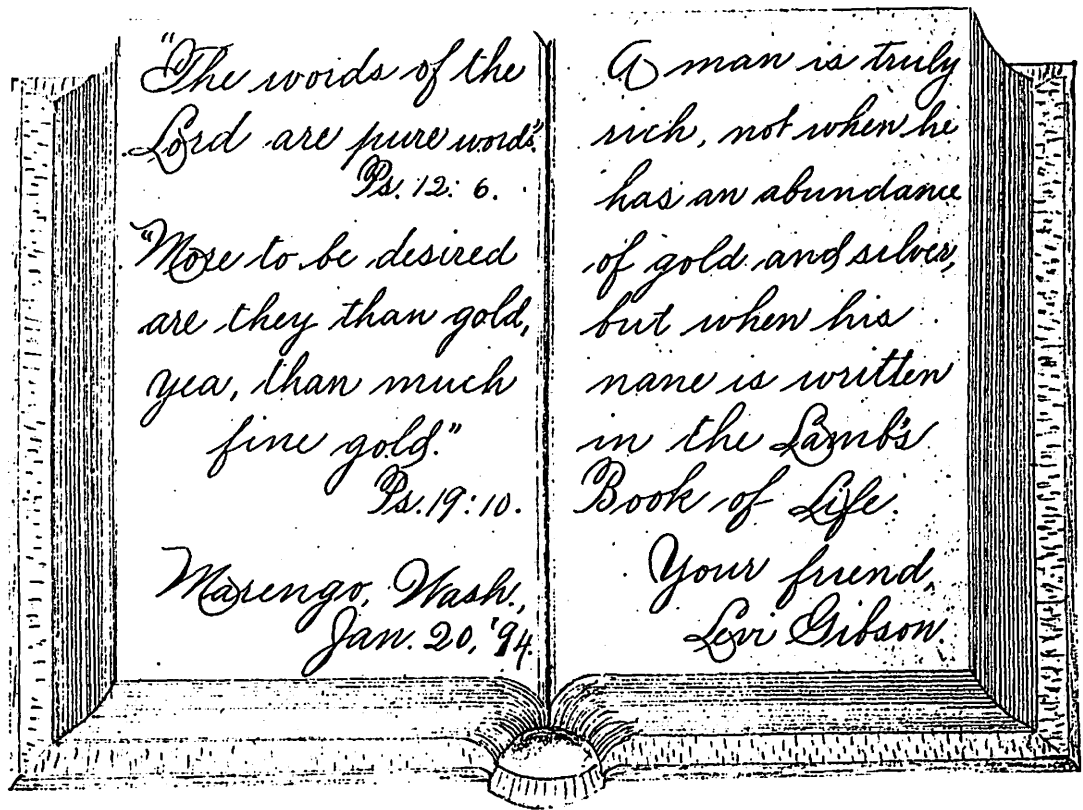 "The words of the
Lord are pure words".
Ps. 12: 6.
"More to be desired
are they than gold,
yea, than much
fine gold."
Ps. 19:10.
Marengo, Wash.,
Jan. 20, '94.
A man is truly
rich, not when he
has an abundance
of gold and silver,
but when his
nane is written
in the Lamb's
Book of Life.
Your friend,
Levi Gibson.